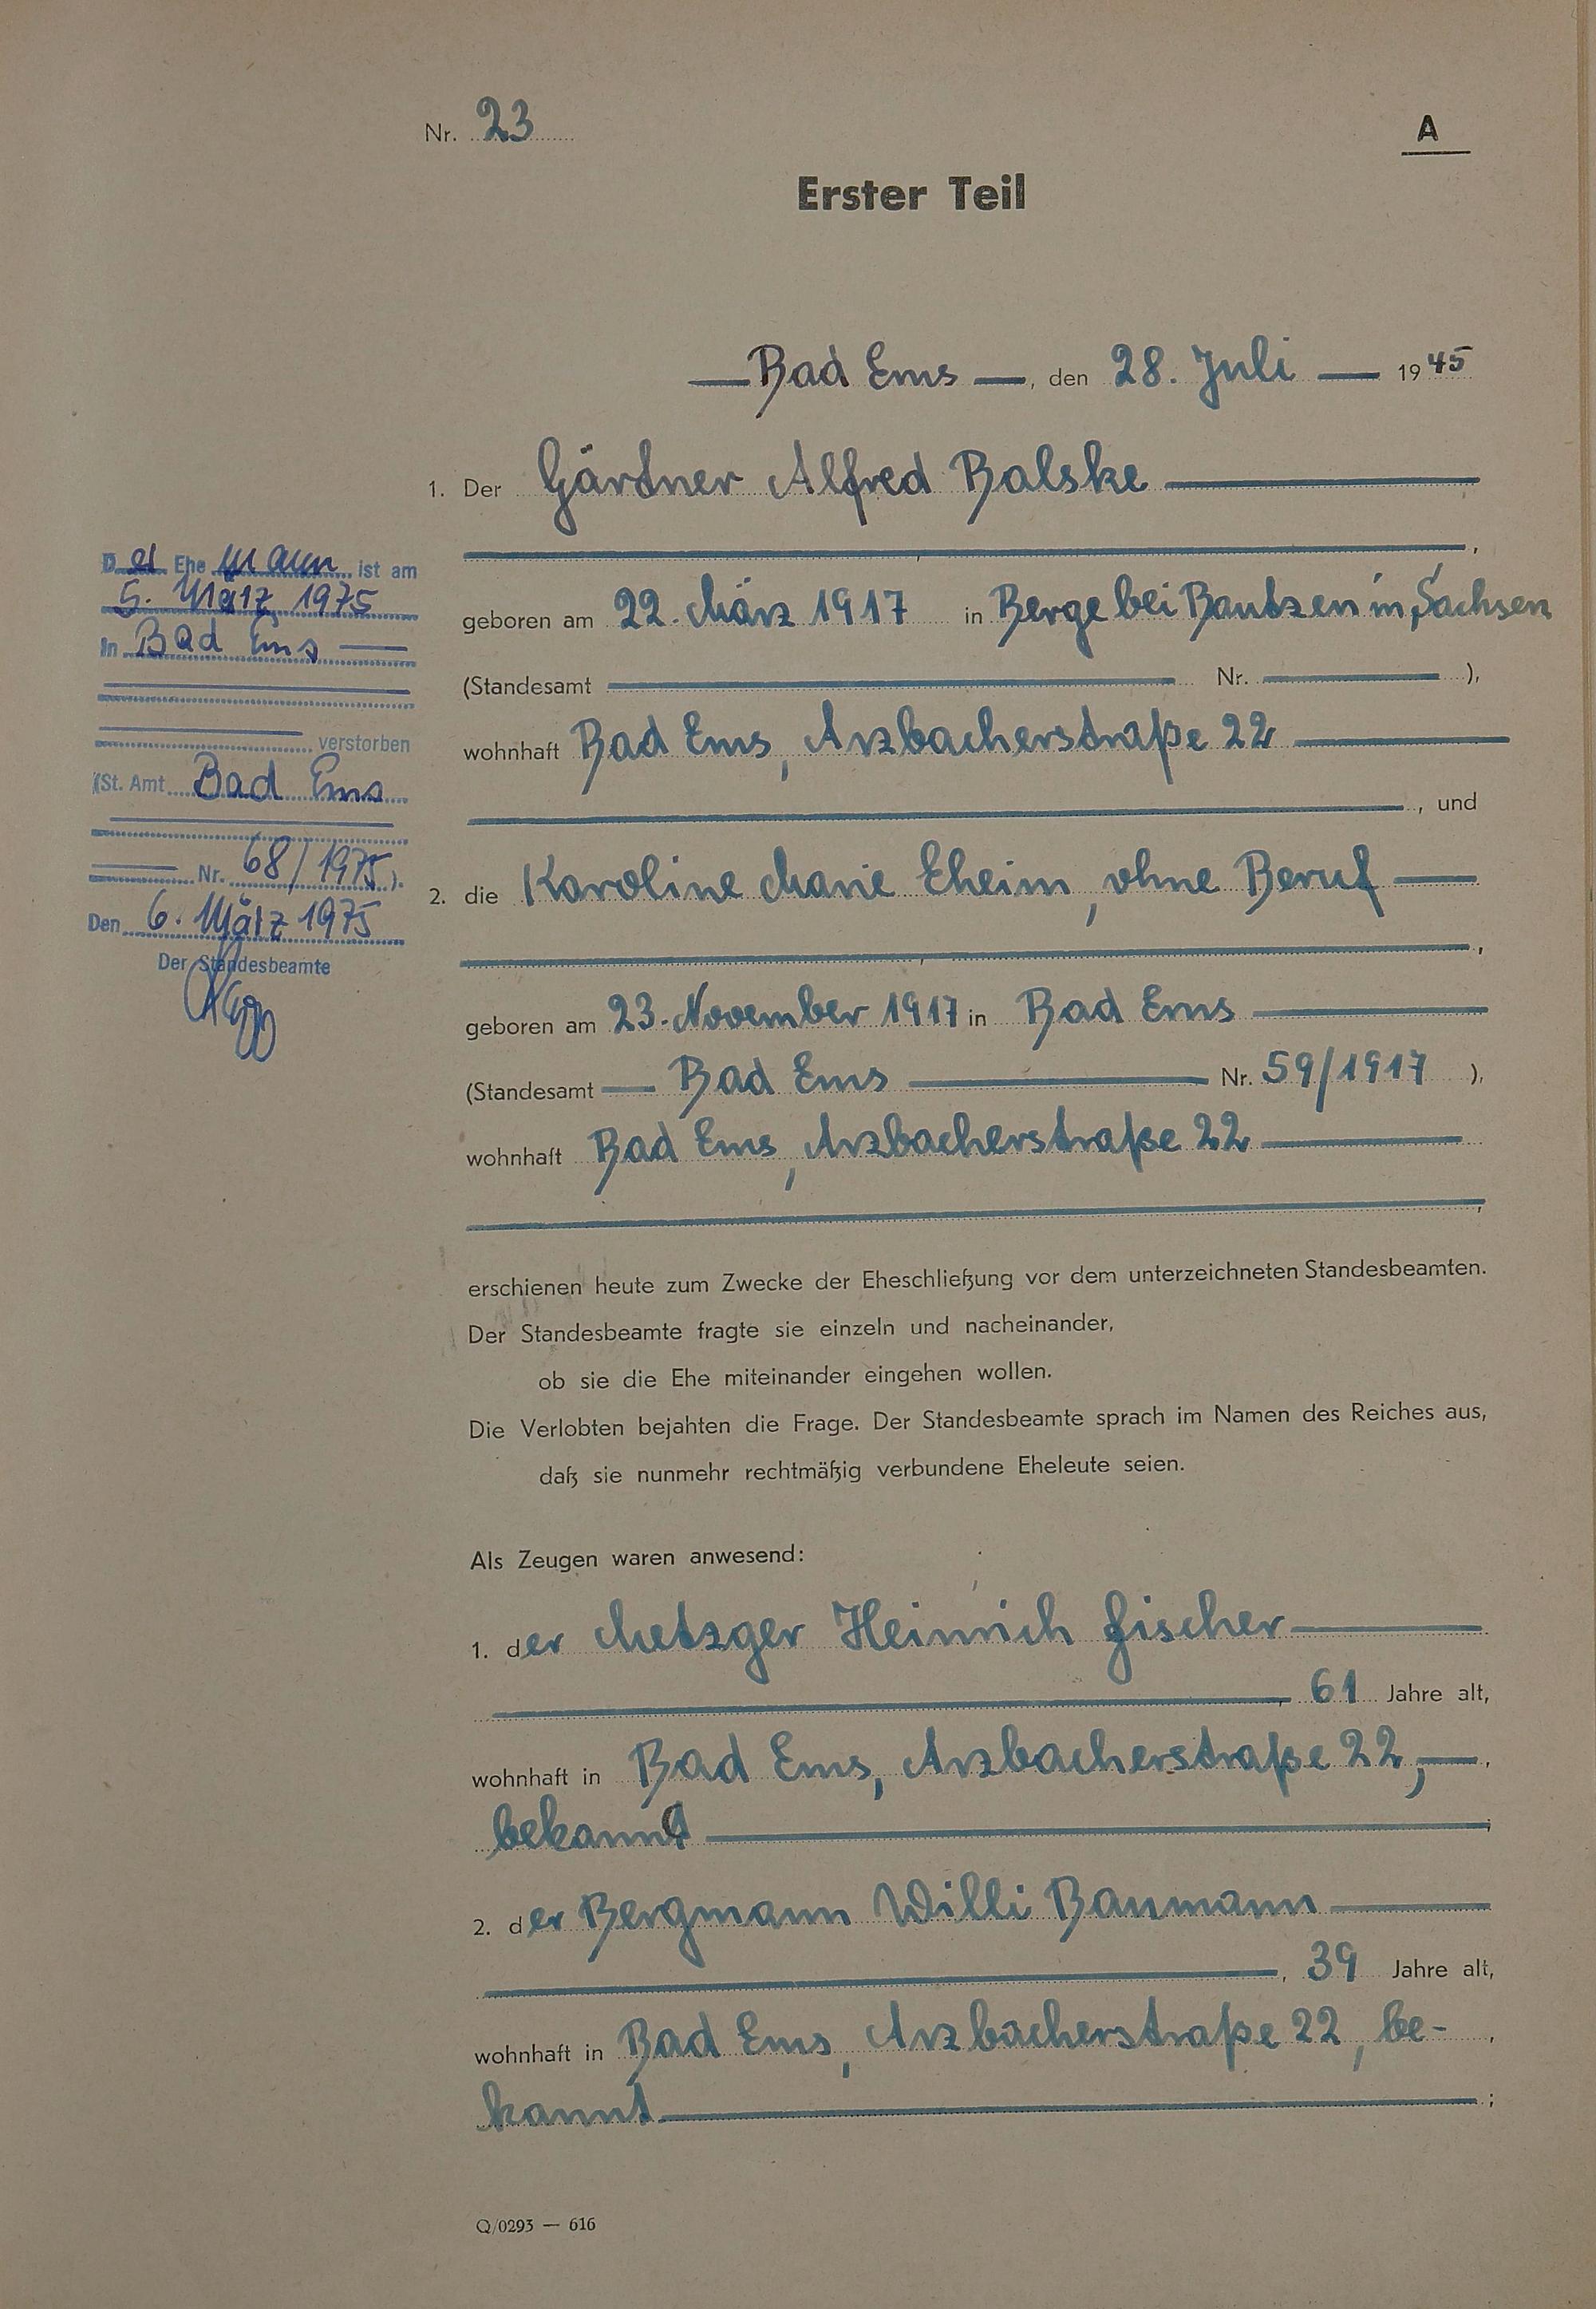 Nr. 23
A
Erster Teil
Bad Ems, den 28. Juli 1945
1. Der Gärdner Alfred Balske
,
geboren am 22. März 1917 in Berge bei Bautzen in Sachsen
(Standesamt Nr. ),
wohnhaft Bad Ems, Arzbacherstraße 22
, und
2. die Karoline Marie Eheim, ohne Beruf
,
geboren am 23. November 1917 in Bad Ems
(Standesamt Bad Ems Nr. 59/1917 ),
wohnhaft Bad Ems, Arzbacherstraße 22
,
erschienen heute zum Zwecke der Eheschließung vor dem unterzeichneten Standesbeamten.
Der Standesbeamte fragte sie einzeln und nacheinander,
ob sie die Ehe miteinander eingehen wollen.
Die Verlobten bejahten die Frage. Der Standesbeamte sprach im Namen des Reiches aus,
daß sie nunmehr rechtmäßig verbundene Eheleute seien.
Als Zeugen waren anwesend:
1. der Metzger Heinrich Fischer
, 61 Jahre alt,
wohnhaft in Bad Ems, Arzbacherstraße 22, ,
bekannt ;
2. der Bergmann Willi Baumann
, 39 Jahre alt,
wohnhaft in Bad Ems, Arzbacherstraße 22, be- ,
kannt ;
Q/0293 — 616
Der Ehemann ist am
5. März 1975
in Bad Ems
verstorben
(St. Amt Bad Ems
Nr. 68/1975).
Den 6. März 1975
Der Standesbeamte